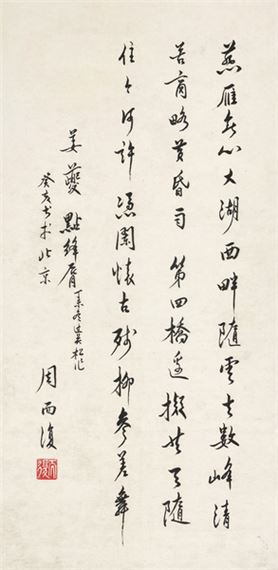 燕雁無心太湖西畔隨雲去數峰清
苦商略黃昏雨第四橋邊擬共天隨
住今何許憑闌懷古殘柳參差舞
姜夔 點絳脣 丁未冬過吳松作
癸亥書於北京
周而復